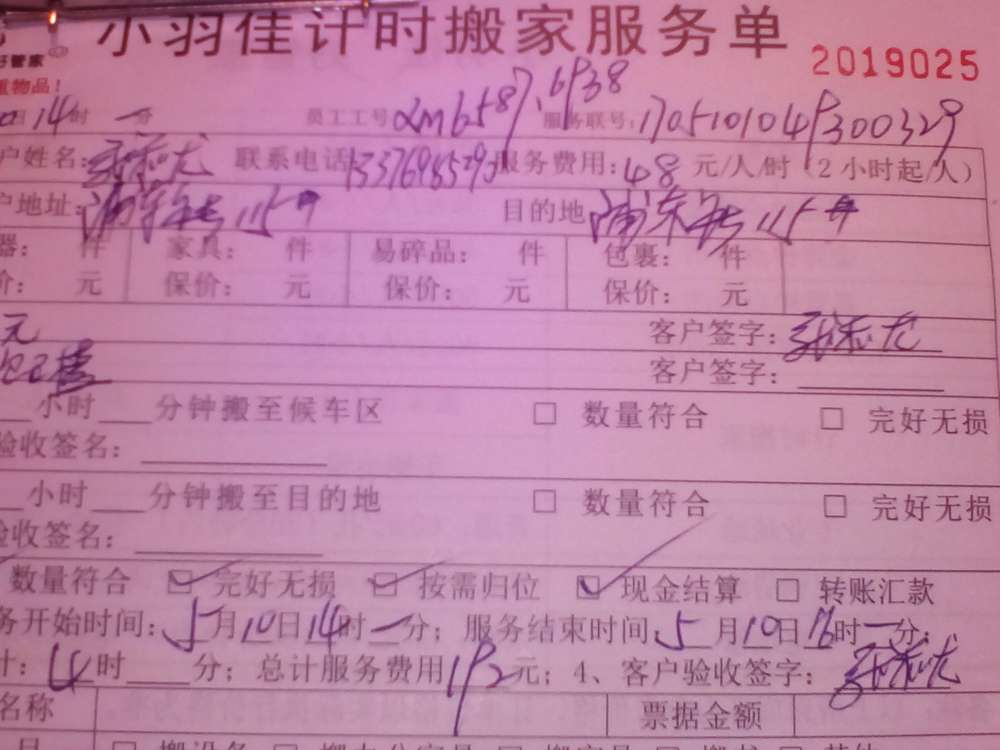 小羽佳计时搬家服务单
好管家
2019025
重物品!
日14时 一分 员工工号 服务联号:170510104 300329
户姓名: 联系电话 服务费用:48 元/人/时(2小时起/人)
户地址: 浦东 115 目的地 浦东 115
器: 件 家具: 件 易碎品: 件 包裹: 件
价: 元 保价: 元 保价: 元 保价: 元
元 客户签字:
客户签字:
小时 分钟搬至候车区 □ 数量符合 □ 完好无损
验收签名:
小时 分钟搬至目的地 □ 数量符合 □ 完好无损
验收签名:
数量符合 ☑ 完好无损 ☑ 按需归位 ☑ 现金结算 □ 转账汇款
务开始时间:5月10日14时一分;服务结束时间:5月10日16时一分;
计:4时 分;总计服务费用192元;4、客户验收签字:
名称 票据金额